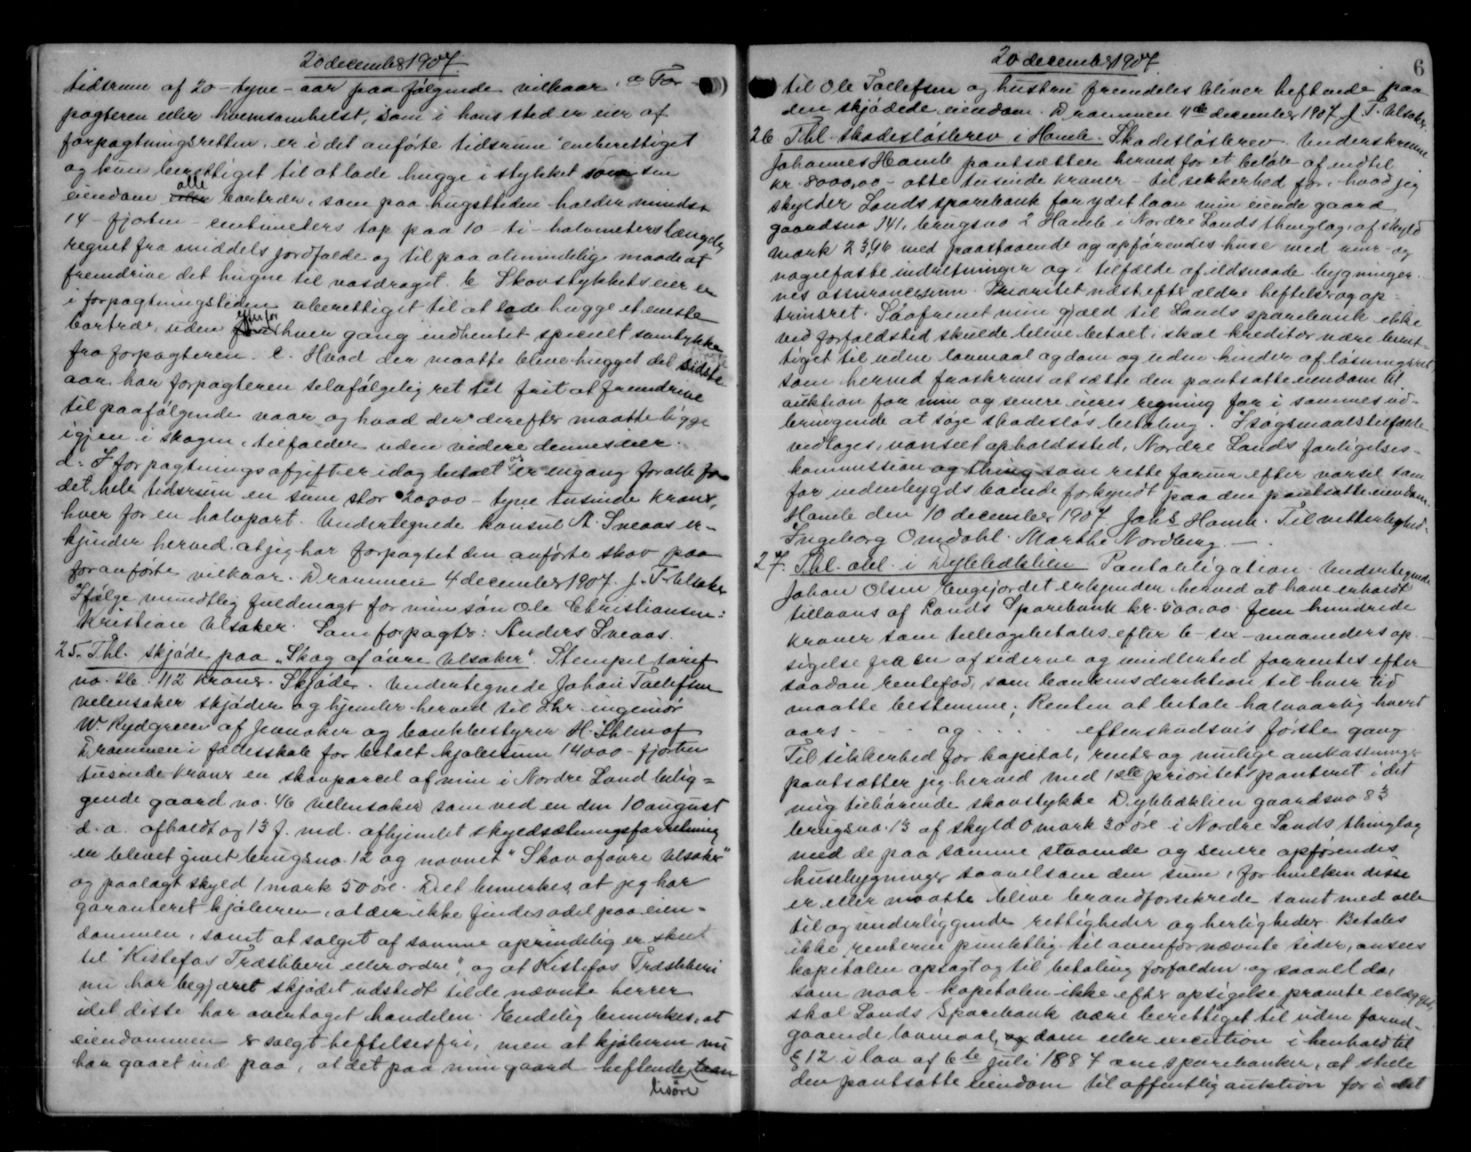 20 december 1907.
tidsrum af 20 - tyve - aar paa følgende vilkaar: a For-
pagteren eller hvemsomhelst, som i hans sted er eier af
forpagtningsretten, er i det anførte tidsrum eneberettiget
og kun berettiget til at lade hugge i stykket som sin
eiendom alle bartrær, som paa hugsttiden holder mindst
14 - fjorten - centimeters top paa 10 - ti - halvmeters længde,
regnet fra middels jordfolde og til paa almindelig maade at
fremdrive det hugne til vasdraget. b Skovstykkets eier er
i forpagtningstiden uberettiget til at lade hugge et eneste
bartræ, uden hver gang indhentet specielt samtykke
fra forpagteren. c. Hvad der maatte blive hugget det sidste
aar, har forpagteren selvfølgelig ret til frit at fremdrive
til paafølgende vaar og hvad der derefter maatte ligge
igjen i skogen, tilfalder uden videre dennes eier.
d. I forpagtningsafgift er idag betalt er engang for alle for
det hele tidsrum en sum stor 20,000 - tyve tusinde kroner,
hver for en halvpart. Undertegnede konsul A. Sveaas er-
kjender herved at jeg har forpagtet den anførte skov paa
foranførte vilkaar. Drammen 4 december 1907. J. T. Ulsaker
Ifølge mundtlig fuldmagt for min søn Ole Christiansen:
Kristian Ulsaker. Som forpagter: Anders Sveaas.
25. Thl. skjøde paa "Skog af øvre Ulsaker". Stempel tarif
no. 26. 112 kroner. Skjøde. Undertegnede Johan Tollefsen
velensaker skjøder og hjemler herved til Dhr ingeniør
W. Rydgreen af Jevnaker og bankbestyrer H. af
Drammen i fællesskab for betalt kjøbesum 14000 - fjorten
tusinde kroner en skovparcel af min i Nordre Land belig-
gende gaard no. 46 velensaker som ved en den 10 august
d. a. afholdt og 13 f. md. afhjemlet skyldsætningsforretning
er blevet givet brugsno. 12 og navnet "Skov af øvre Ulsaker"
og paalagt skyld 1 mark 50 øre. Det bemerkes, at jeg har
garanteret kjøberen, at der ikke findes odel paa eien-
dommen, samt at salget af samme oprindelig er skeet
til "Kistefos Træsliberi eller ordre", og at Kistefos Træsliberi
nu har begjæret skjødet udstedt til de nævnte herrer
idet disse har overtaget handelen. Endelig bemerkes, at
eiendommen er solgt heftelsesfri, men at kjøberen nu
har gaaet ind paa, at det paa min gaard heftende laan
20 december 1907.
6
til Ole Tollefsen og hustru fremdeles bliver heftende paa
den skjødede eiendom. Drammen 4de december 1907 J. T. Ulsaker.
26. Thl. skadesløsbrev i Hamle. Skadesløsbrev. Underskrevne
Johannes Hamle pantsætter herved for et beløb af indtil
kr. 8000,00 - otte tusinde kroner - til sikkerhed for, hvad jeg
skylder Lands sparebank for ydet laan min eiende gaard
gaardsno 141, brugsno 2 Hamle i Nordre Lands thinglag, af skyld
mark 23,96 med paastaaende og opførendes huse med mur- og
nagelfaste indretninger og i tilfælde af ildsvaade bygninger-
nes assurancesum. Prioritet næst efter ældre heftelser og op-
trinsret. Saafremt min gjæld til Lands sparebank ikke
ved forfaldstid skulde blive betalt, skal kreditor være beret-
tiget til uden lovmaal og dom og uden hinder af løsningsret,
som herved fraskrives at sætte den pantsatte eiendom til
auktion for min og senere eieres regning for i sammes ud-
bringende at søge skadesløs betaling. I søgsmaalstilfælde
vedtages, uanseet opholdssted, Nordre Lands forligelses-
kommission og thing som rette forum efter varsel som
for indenbygds boende forkyndt paa den pantsatte eiendom.
Hamle den 10 december 1907 Johs Hamle. Til vitterlighed:
Ingeborg Omdahl. Marthe Nordberg.
27. Thl. obl. i Dyblidklien Pantobligation. Undertegnede
Johan Olsen Engejordet erkjender herved at have erholdt
tillaans af Lands Sparebank kr. 500,00. fem hundrede
kroner som tilbagebetales efter 6 - sex - maaneders op-
sigelse fra en af siderne og imidlertid forrentes efter
saadan rentefod, som bankens direktion til hver tid
maatte bestemme; Renten at betale halvaarlig hvert
aars . . . . og . . . . efterskudsvis første gang
Til sikkerhed for kapital, renter og mulige omkostninger
pantsætter jeg herved med 1ste prioritets panteret i det
mig tilhørende skovstykke Dyblidklien gaardsno 83
brugsno. 13 af skyld 0 mark 30 øre i Nordre Lands thinglag
med de paa samme staaende og senere opførendes
husebygninger saavelsom den sum, for hvilken disse
er eller maatte blive brandforsikrede samt med alle
til og underliggende rettigheder og herligheder. Betales
ikke renterne punktlig til ovenfornævnte tider, ansees
kapitalen opsagt og til betaling forfalden og saavel da,
som naar kapitalen ikke efter opsigelse promte erlægges,
skal Lands Sparebank være berettiget til uden forud-
gaaende lovmaal, dom eller execution i henhold til
§ 12 i lov af 6te juli 1887 om sparebanker, at stille
den pantsatte eiendom til offentlig auktion for i det